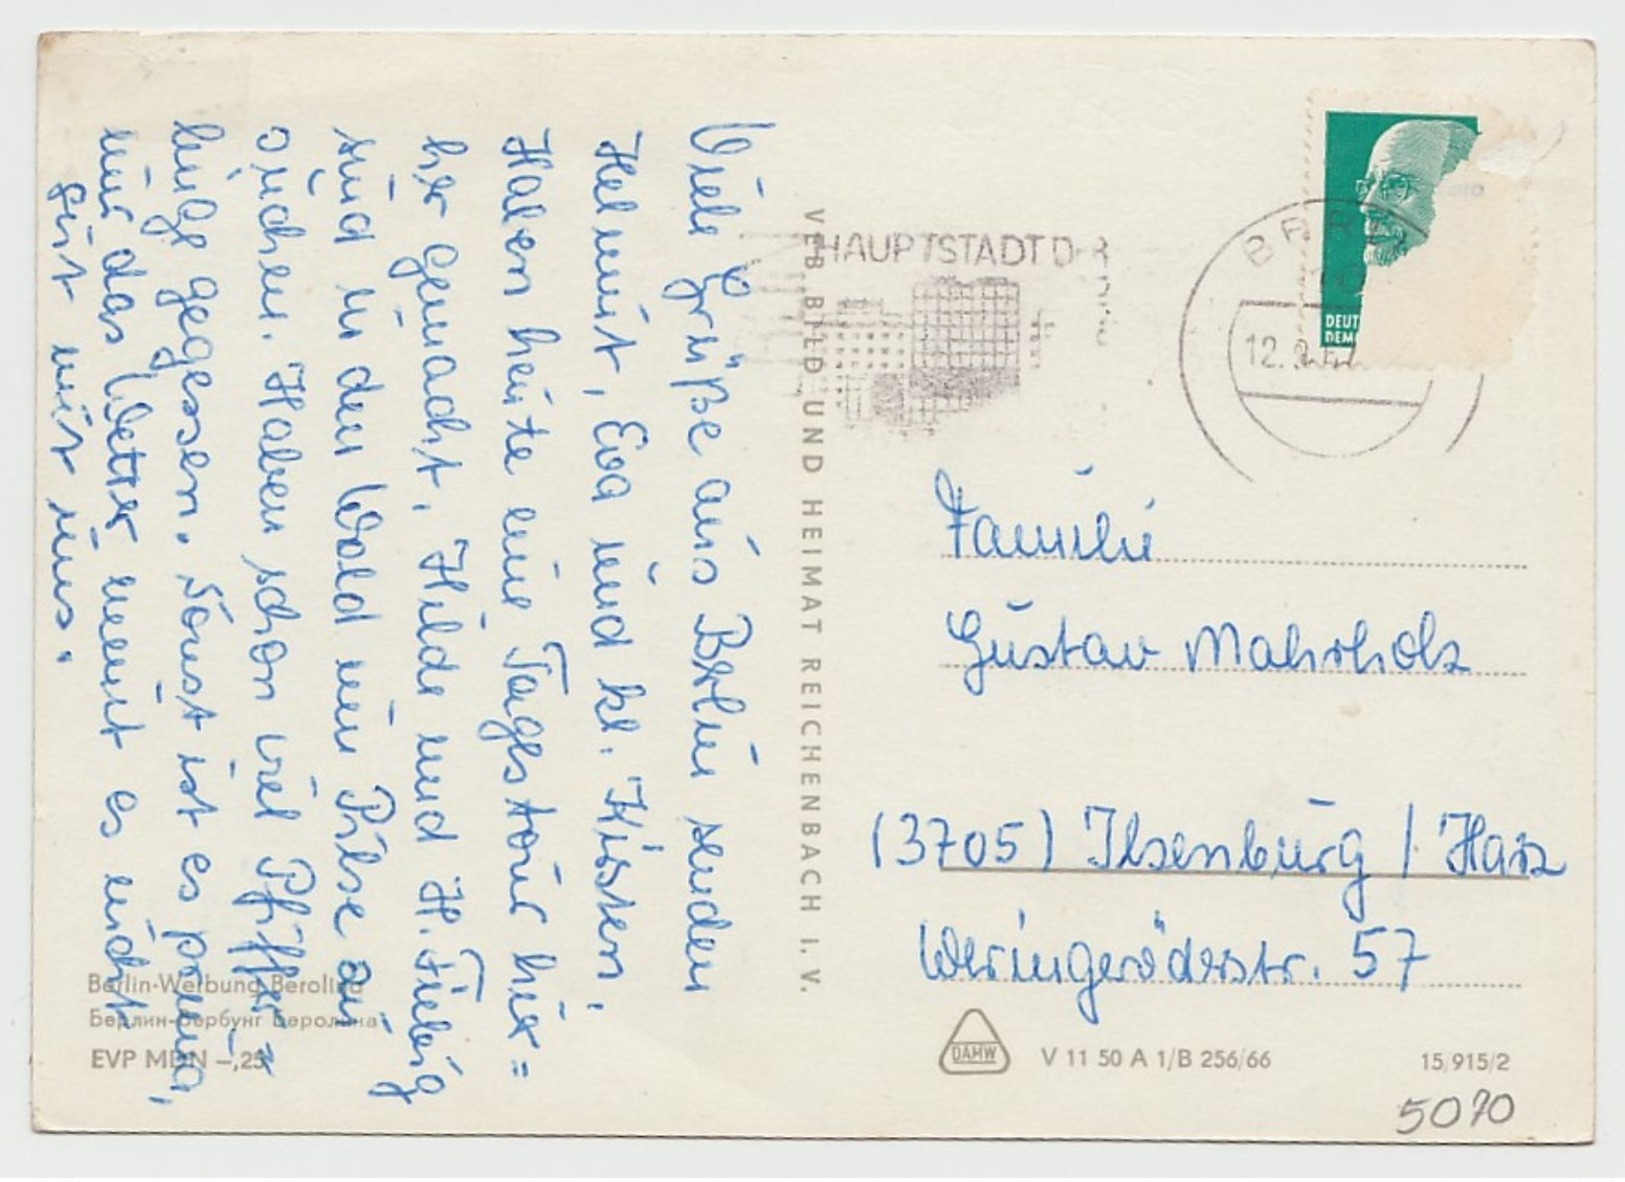 Viele Grüße aus Berlin senden
Helmut, Eva und kl. Kirsten.
Haben heute eine Tagestour hier=
her gemacht. Hilde und H. Fiebig
sind in den Wald um Pilse zu
suchen. Haben schon viel Pfiffer=
linge gegessen. Sonst ist es prima,
nur das Wetter meint es nicht
gut mit uns.
VEB BILD UND HEIMAT REICHENBACH I. V.
HAUPTSTADT D
12.
DEUT
DEM
Familie
Gustav Mahrholz
(3705) Ilsenburg / Harz
Weringeröderstr. 57
Berlin-Werbung Berolina
Берлин-Вербунг Беролина
EVP MDN –,25
DAMW
V 11 50 A 1/B 256/66
15/915/2
5070